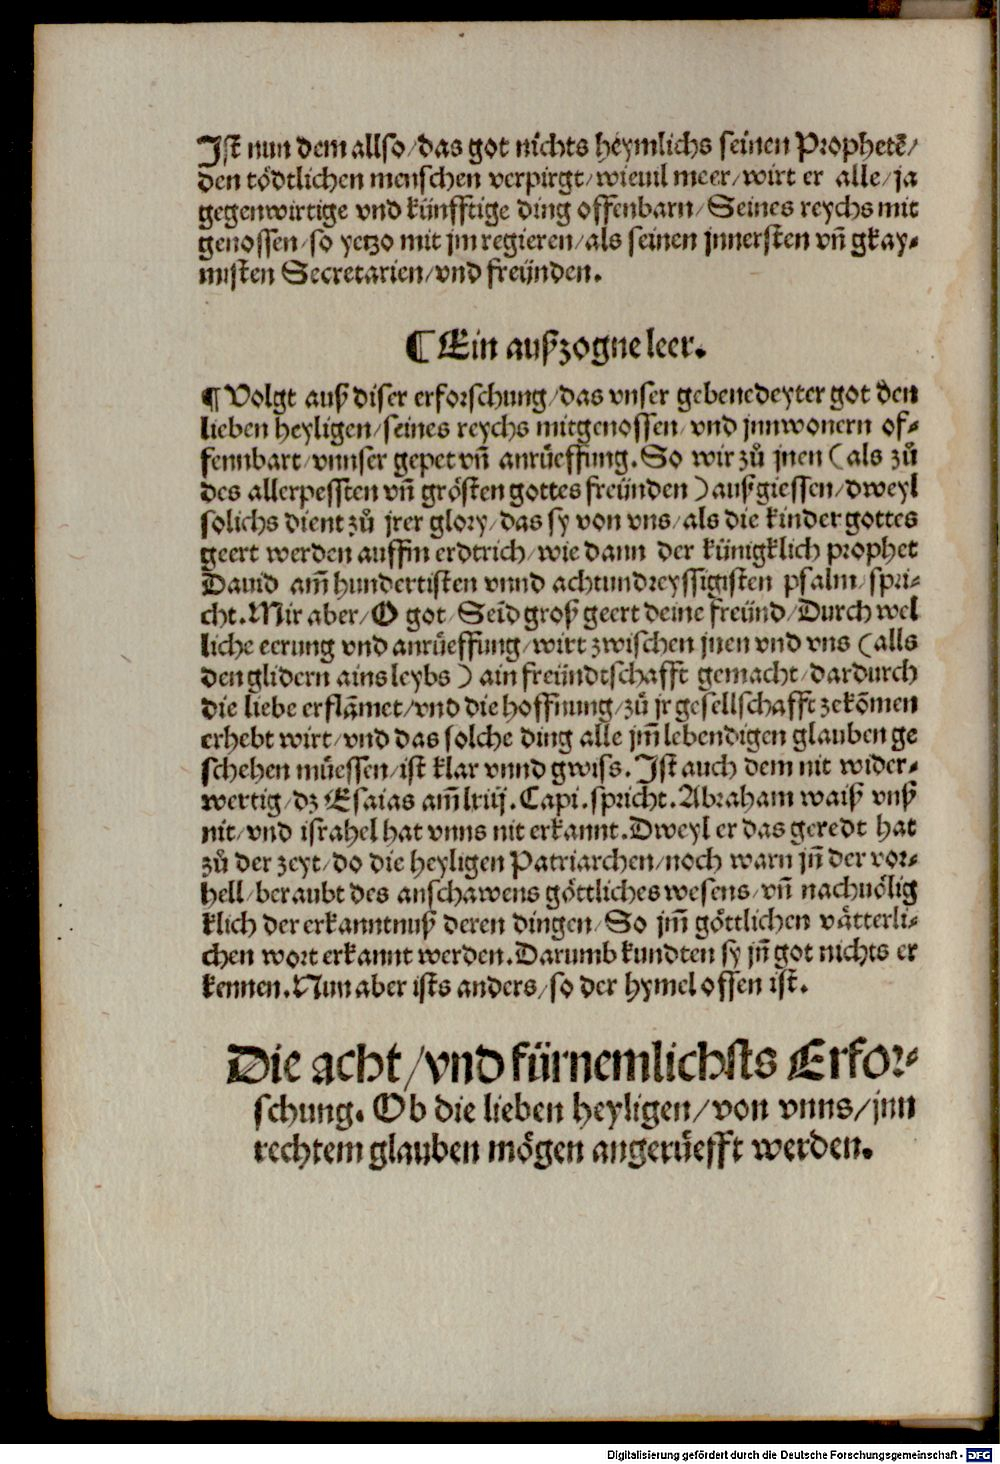 Ist nun dem allso/das got nichts heymlichs seinen Prophetē/
den tödtlichen menschen verpirgt/wieuil meer/wirt er alle/ja
gegenwirtige vnd künfftige ding offenbarn/Seines reychs mit
genossen/so yetzo mit jm regieren/als seinen jnnersten vñ gkay⸗
misten Secretarien/vnd freünden.
¶ Ein außzogne leer.
¶ Volgt auß diser erforschung/das vnser gebenedeyter got den
lieben heyligen/seines reychs mitgenossen/vnd jnnwonern of⸗
fennbart/vnnser gepet vñ anrüeffung. So wir zů jnen (als zů
des allerpessten vñ grösten gottes freünden) außgiessen/dweyl
solichs dient zů jrer glory/das sy von vns/als die kinder gottes
geert werden auffm erdtrich/wie dann der künigklich prophet
Dauid am̃ hundertisten vnnd achtundreyssigisten psalm/spri⸗
cht. Mir aber/O got/Seīd groß geert deine freünd/Durch wel
liche eerung vnd anrüeffung/wirt zwischen jnen vnd vns (alls
den glidern ains leybs) ain freündtschafft gemacht/dardurch
die liebe erflām̄et/vnd die hoffnung/zů jr gesellschafft zekōmen
erhebt wirt/vnd das solche ding alle jm̃ lebendigen glauben ge
schehen müessen/ist klar vnnd gwiss. Ist auch dem nit wider⸗
wertig/dz Esaias am̃ lxiij. Capi. spricht. Abraham waiß vnß
nit/vnd israhel hat vnns nit erkannt. Dweyl er das geredt hat
zů der zeyt/do die heyligen Patriarchen/noch warn jñ der vor⸗
hell/beraubt des anschawens göttliches wesens/vñ nachuölig
klich der erkanntnuß deren dingen/So jm̃ göttlichen vätterli⸗
chen wort erkannt werden. Darumb kundten sy jñ got nichts er
kennen. Nun aber ists anders/so der hymel offen ist.
Die acht/vnd fürnemlichsts Erfor⸗
schung. Ob die lieben heyligen/von vnns/jnn
rechtem glauben mögen angerüefft werden.
Digitalisierung gefördert durch die Deutsche Forschungsgemeinschaft - DFG